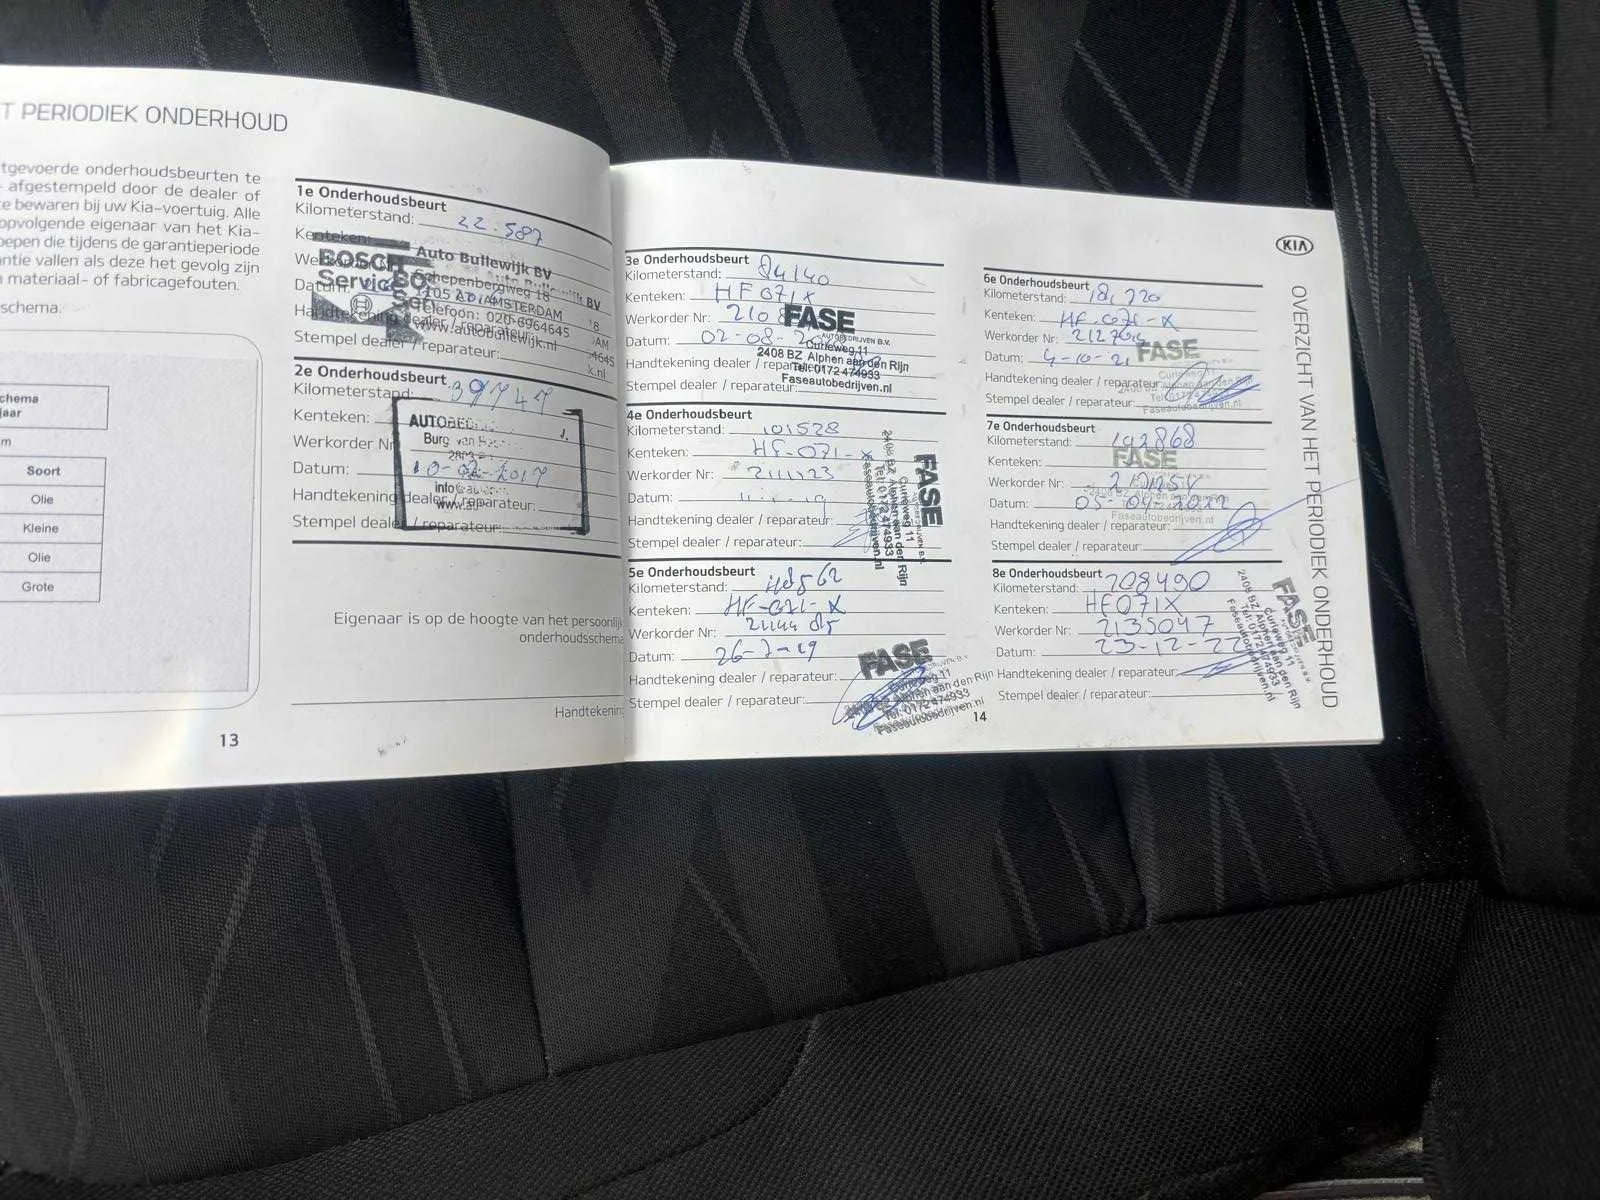 T PERIODIEK ONDERHOUD
tgevoerde onderhoudsbeurten te
afgestempeld door de dealer of
te bewaren bij uw Kia-voertuig. Alle
opvolgende eigenaar van het Kia-
oepen die tijdens de garantieperiode
antie vallen als deze het gevolg zijn
materiaal- of fabricagefouten.
schema.
chema
jaar
m
Soort
Olie
Kleine
Olie
Grote
13
1e Onderhoudsbeurt
Kilometerstand: 22.587
Kenteken:
BOSCH
Service
Auto Bullewijk BV
Schepenbergweg 18
1105 AMSTERDAM
Telefoon: 020-6964645
www.autobullewijk.nl
Stempel dealer / reparateur:
2e Onderhoudsbeurt
Kilometerstand: 39747
Kenteken:
Werkorder Nr
Datum: 10-02-2017
Handtekening dealer / reparateur:
Stempel dealer / reparateur:
Burg van
www.au
Eigenaar is op de hoogte van het persoonlijk
onderhoudsschema
Handtekenin
3e Onderhoudsbeurt
Kilometerstand: 84140
Kenteken: HF071X
Werkorder Nr: 2108
Datum: 02-08-
Handtekening dealer / reparateur:
Stempel dealer / reparateur:
FASE
AUTOBEDRIJVEN B.V.
Curieweg 11
2408 BZ Alphen aan den Rijn
Tel: 0172-474933
Faseautobedrijven.nl
4e Onderhoudsbeurt
Kilometerstand: 101528
Kenteken: HF-071-X
Werkorder Nr: 2111123
Datum:
Handtekening dealer / reparateur:
Stempel dealer / reparateur:
FASE
Curieweg 11
2408 BZ Alphen aan den Rijn
Tel: 0172-474933
Faseautobedrijven.nl
5e Onderhoudsbeurt
Kilometerstand:
Kenteken: HF-071-X
Werkorder Nr:
Datum: 26-7-19
Handtekening dealer / reparateur:
Stempel dealer / reparateur:
FASE
Curieweg 11
2408 BZ Alphen aan den Rijn
Tel: 0172-474933
Faseautobedrijven.nl
14
KIA
6e Onderhoudsbeurt
Kilometerstand:
Kenteken: HF-071-X
Werkorder Nr:
Datum: 4-10-21
Handtekening dealer / reparateur
Stempel dealer / reparateur:
FASE
Curieweg 11
Faseautobedrijven.nl
7e Onderhoudsbeurt
Kilometerstand: 192868
Kenteken:
Werkorder Nr:
Datum: 05-04-2022
Handtekening dealer / reparateur:
Stempel dealer / reparateur:
FASE
Faseautobedrijven.nl
8e Onderhoudsbeurt
Kilometerstand: 208490
Kenteken: HF071X
Werkorder Nr: 2135047
Datum: 23-12-22
Handtekening dealer / reparateur:
Stempel dealer / reparateur:
FASE
Curieweg 11
2408 BZ Alphen aan den Rijn
Tel: 0172-474933
Faseautobedrijven.nl
OVERZICHT VAN HET PERIODIEK ONDERHOUD